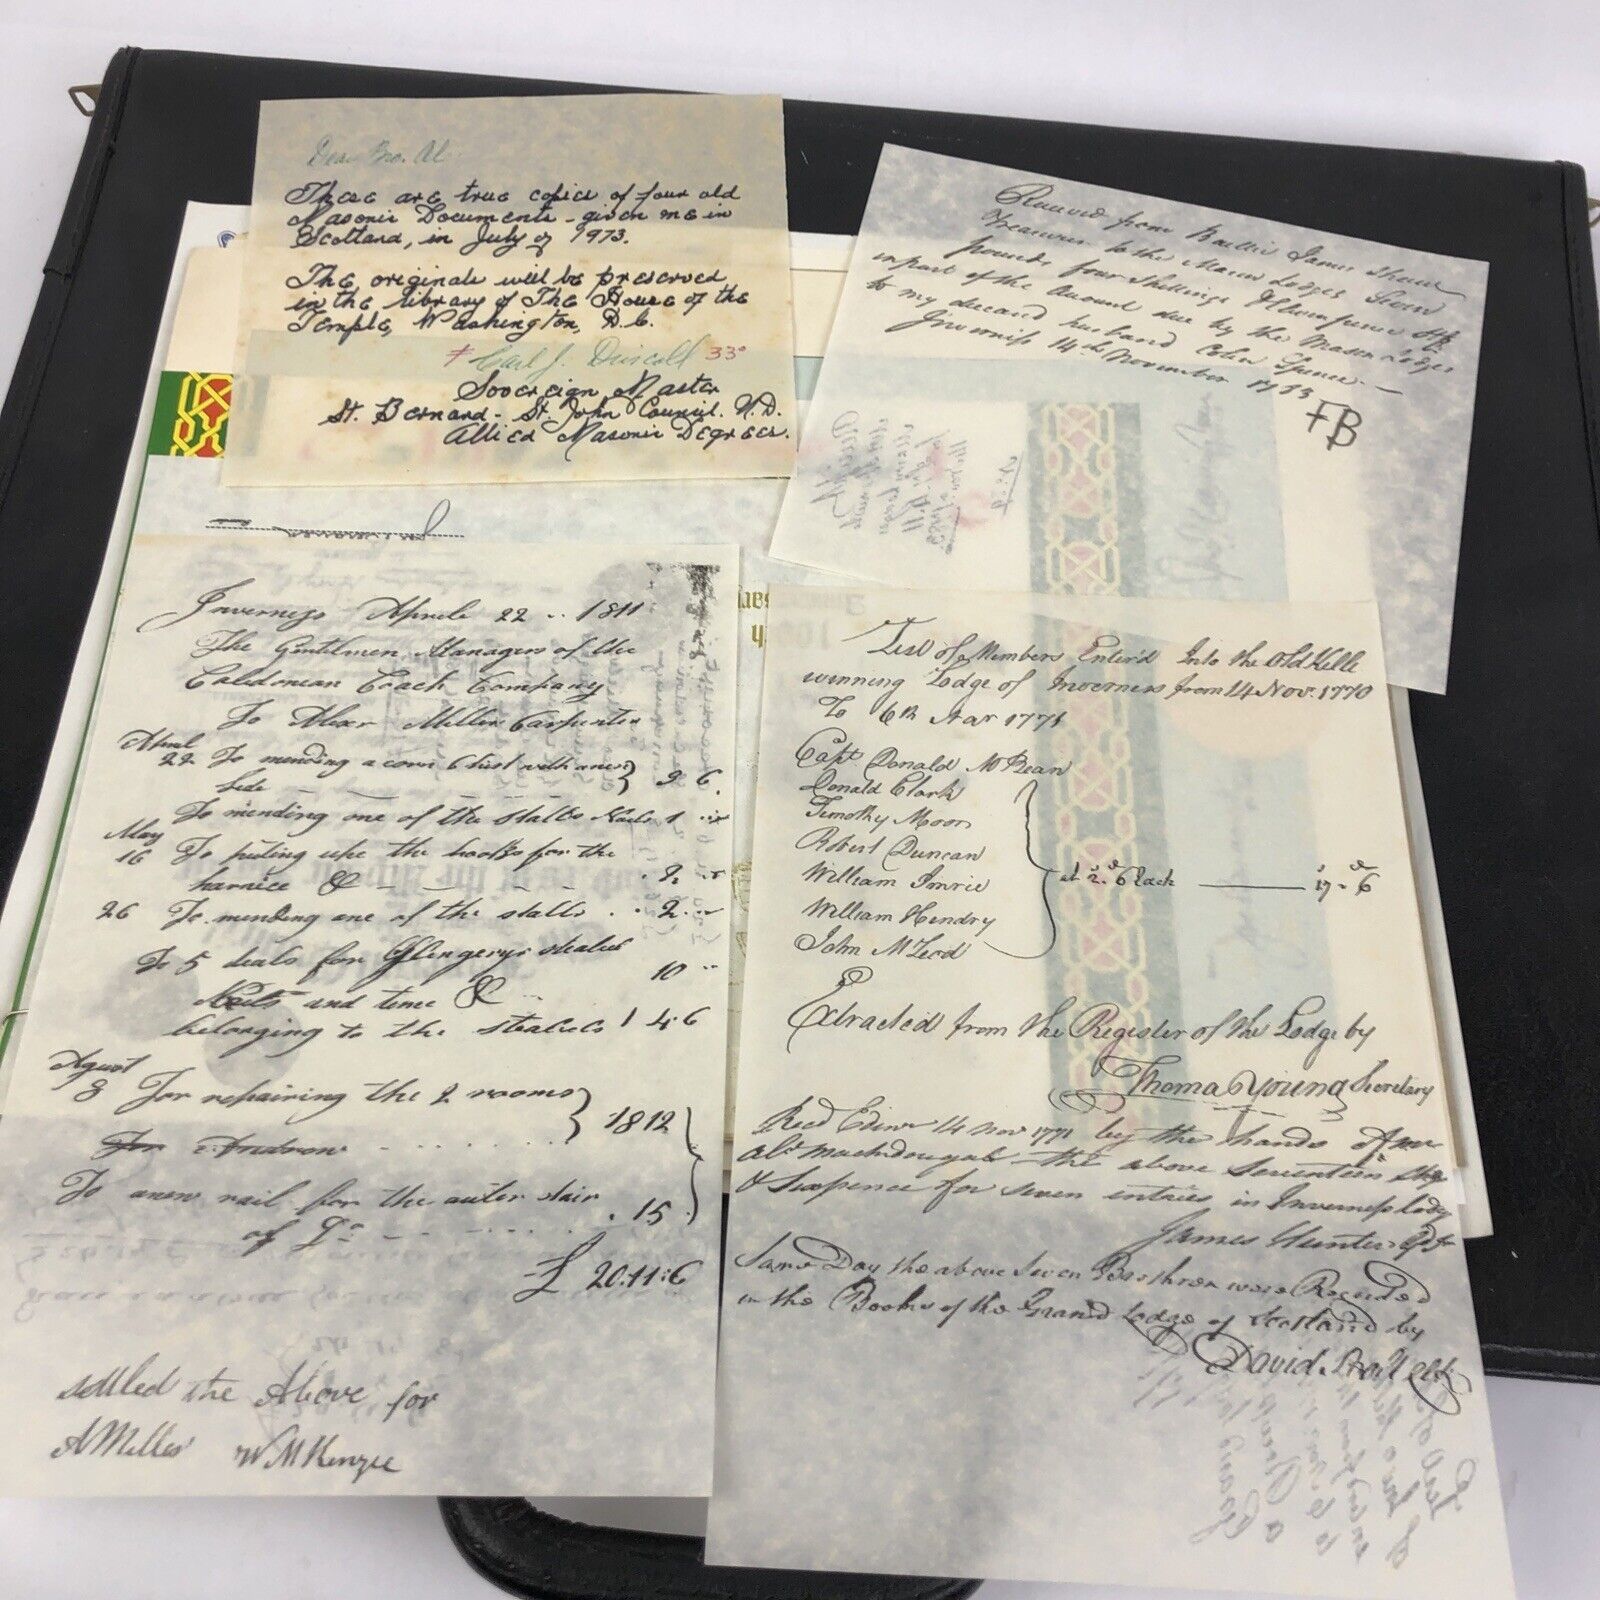 Dear Bro. Al.
These are true copies of four old
Masonic Documents - given me in
Scotland, in July of 1973.
The originals will be preserved
in the library of The House of the
Temple, Washington, D.C.
Carl J. Driscoll 33°
Sovereign Master
St. Bernard - St. John Council. N.D.
Allied Masonic Degrees.
Received from Baillie James
Treasurer to the Mason Lodges Seven
pounds four Shillings
in part of the Amount due by the Mason Lodges
to my deceasd husband Colin Spence. —
Inverniss 14th November 1783
FB
Inverness Aprile 22 .. 1811
The Gentilmen Managers of the
Caledonean Coach Company
To Alexr Miller Carpenter
April
22 To mending a corn Chist with anew } 3 6
Lide
To mending one of the stalls Nails 1 ..
May
16 To puting upe the hooks for the
harnice &c - - - - . 2. ..
26 To mending one of the stalls . . 2 ..
To 5 deals for Glengerys steabels
Neals and time &c ... 10 ..
belonging to the steabels 1 4 : 6
Agust
8 For repairing the 2 rooms } 1812
For Andrew . . . . . .
To anew rail for the auter stair
of Do - - . . . . . . 15
£ 20 : 11 : 6
settled the Above for
A Miller W McKenzie
List of Members Enter'd Into the Old Kille
winning Lodge of Inverness from 14 Nov. 1770
To 6th Mar 1771
Capt. Donald McBean
Donald Clark
Timothy Moon
Robert Duncan
William Imrie } at 2s. 6d Each — 17s - 6d
William Hendry
John McLeod
Extracted from the Register of the Lodge by
Thomas Young Secretary
Recd Edinr 14 Nov 1771 by the hands of Mr
Alr MackDougal the above Seventeen Shs
& Sixpence for seven entries in Inverness Lodg
James Hunter
Same Day the above Seven Brethren were Recorded
in the Books of the Grand Lodge of Scotland by
David